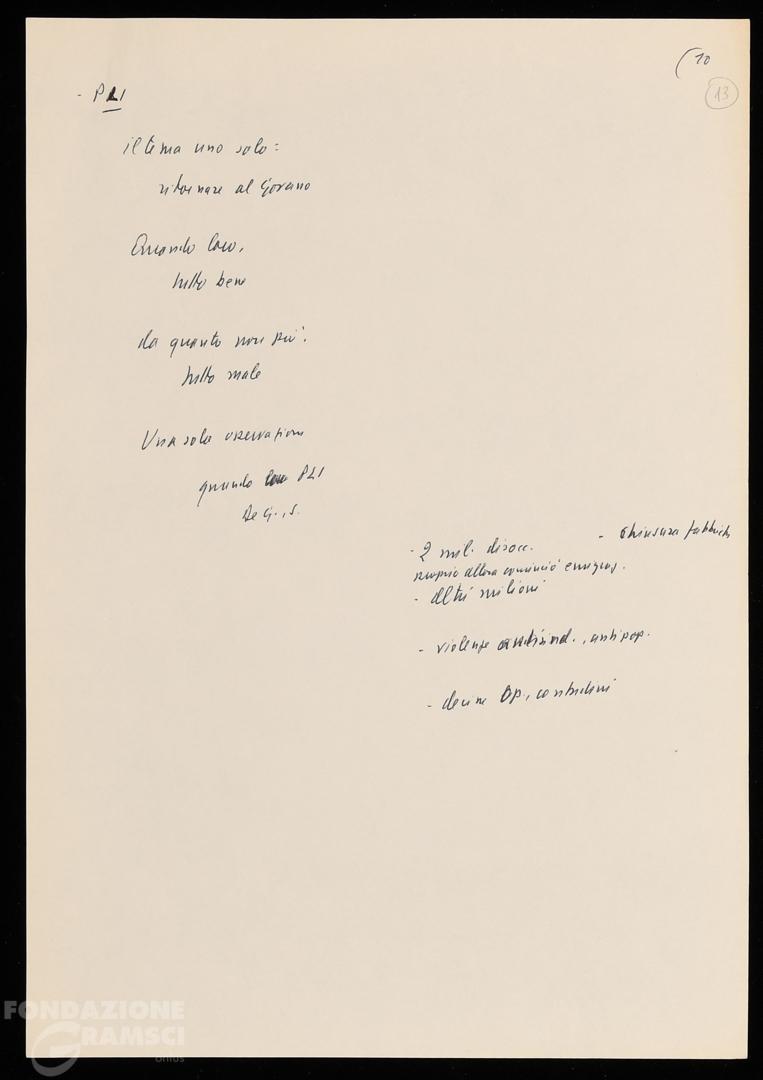 (10
13
- PLI
il tema uno solo:
ritornare al Governo
Quando loro,
tutto bene
da quanto non più.
tutto male
Una sola osservazione
quando PLI
De G., S.
- 2 mil. disocc.
- Chiusura fabbriche
proprio allora cominciò emigraz.
- altri milioni
- violenze antisind., antipop.
- decine op., contadini
FONDAZIONE
GRAMSCI
onlus